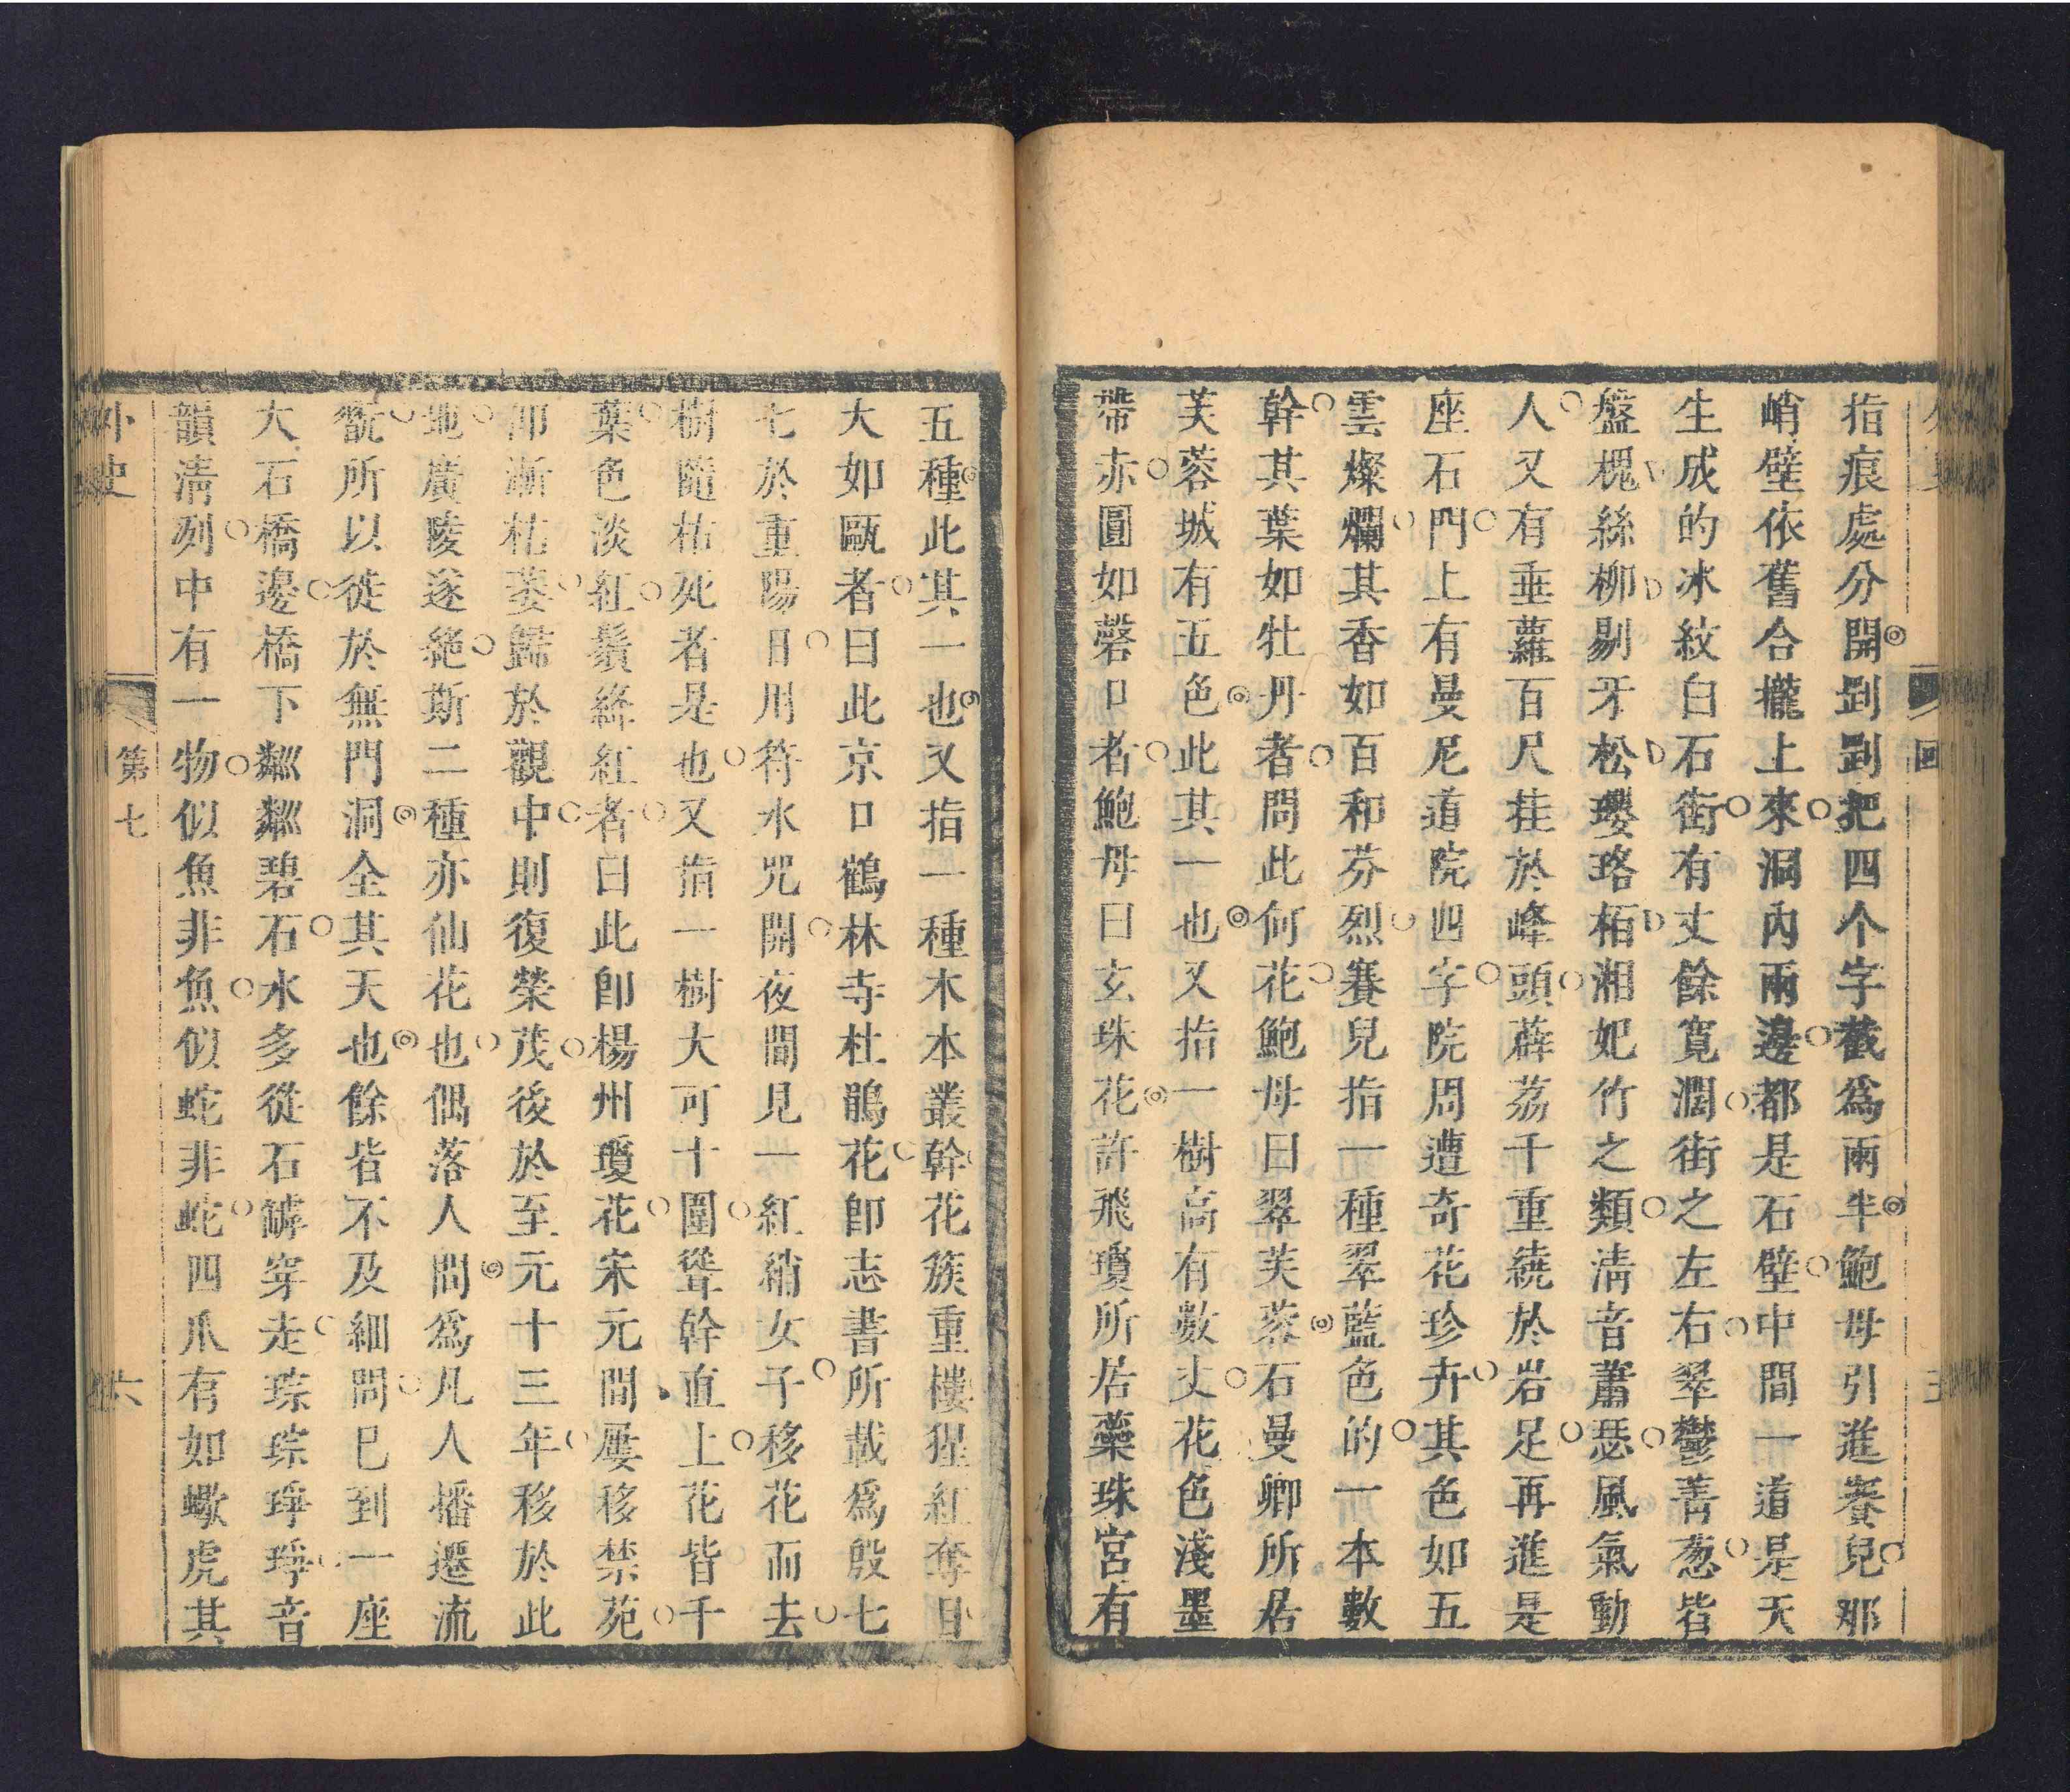 指痕處分開剴剴把四个字截爲兩半鮑母引進賽兒那
峭壁依舊合攏上來洞內兩邊都是石壁中間一道是天
生成的冰紋白石街有丈餘寬濶街之左右翠鬱菁葱皆
盤槐絲柳剔牙松瓔珞栢湘妃竹之類清音蕭瑟風氣動
人又有垂蘿百尺挂於峰頭薜荔千重繞於岩足再進是
座石門上有曼尼道院四字院周遭奇花珍卉其色如五
雲燦爛其香如百和芬烈賽兒指一種翠藍色的一本數
幹其葉如牡丹者問此何花鮑母曰翠芙蓉石曼卿所居
芙蓉城有五色此其一也又指一樹高有數丈花色淺墨
帶赤圓如磬口者鮑母曰玄珠花許飛瓊所居蘂珠宮有
五種此其一也又指一種木本叢幹花簇重樓猩紅奪目
大如甌者曰此京口鶴林寺杜鵑花卽志書所載爲殷七
七於重陽日用符水咒開夜間見一紅綃女子移花而去
樹隨枯死者是也又指一樹大可十圍聳幹直上花皆千
葉色淡紅鬚絳紅者曰此卽楊州瓊花宋元間屢移禁苑
卽漸枯萎歸於觀中則復榮茂後於至元十三年移於此
地廣陵遂絕斯二種亦仙花也偶落人間爲凡人播遷流
翫所以徙於無門洞全其天也餘皆不及細問已到一座
大石橋邊橋下粼粼碧石水多從石罅穿走琮琮琤琤音
韻清冽中有一物似魚非魚似蛇非蛇四爪有如蠍虎其
外史
第七
六